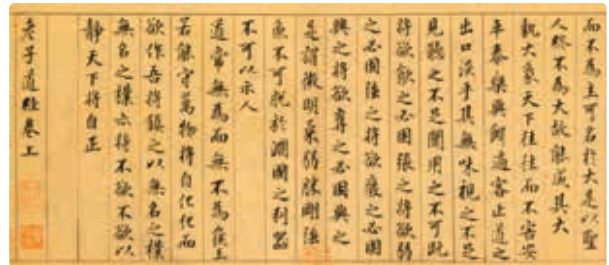 而不為主可名於大是以聖
人終不為大故能成其大
執大象天下往往而不害安
平泰樂與餌過客止道之
出口淡乎其無味視之不足
見聽之不足聞用之不可既
將欲歙之必固張之將欲弱
之必固強之將欲廢之必固
興之將欲奪之必固與之
是謂微明柔弱勝剛強
魚不可脫於淵國之利器
不可以示人
道常無為而無不為侯王
若能守萬物將自化化而
欲作吾將鎮之以無名之樸
無名之樸亦將不欲不欲以
靜天下將自正
老子道經卷上